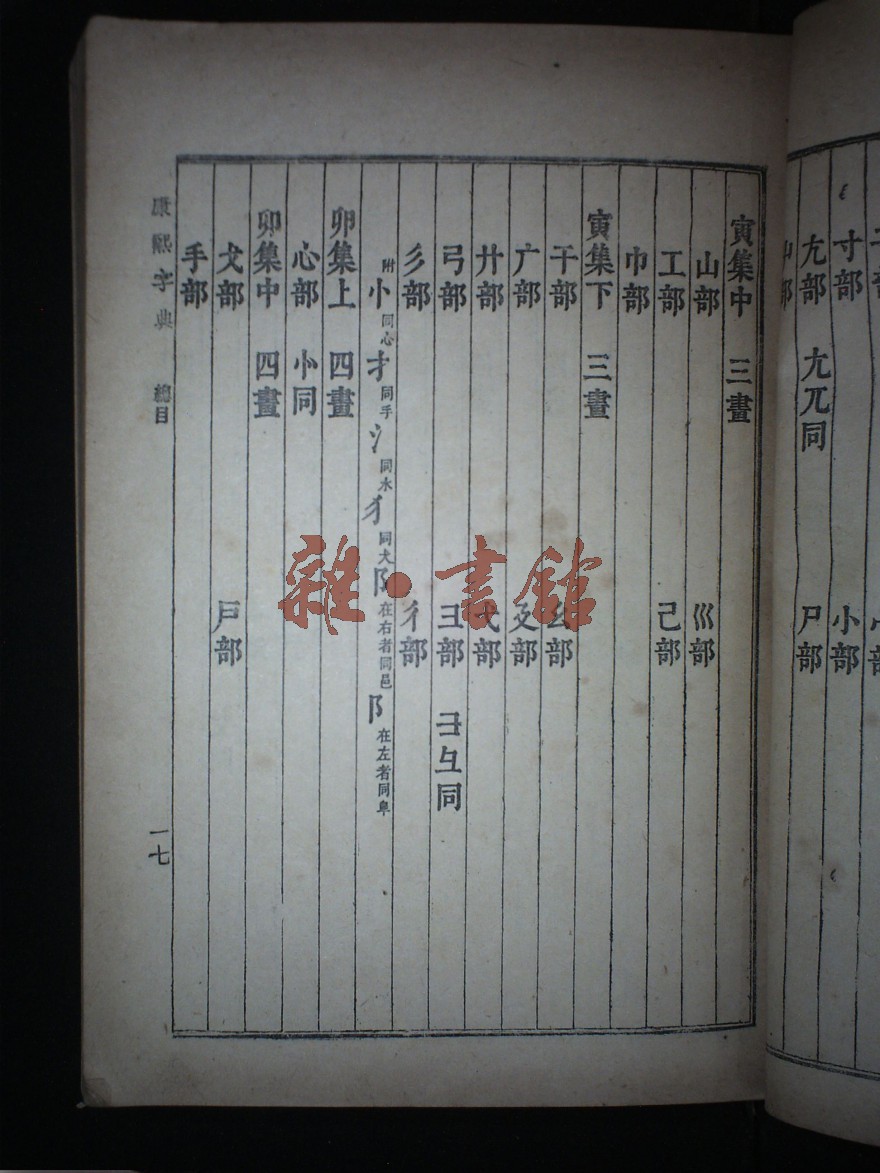 寸部
尢部 尣兀同 尸部
小部
寅集中 三畫
山部 巛部
工部 己部
巾部
寅集下 三畫
干部 幺部
广部 廴部
廾部 弋部
弓部 彐部 彑彐同
彡部 彳部
附 忄同心 扌同手 氵同水 犭同犬 阝在右者同邑 阝在左者同阜
卯集上 四畫
心部 㣺同
卯集中 四畫
戈部 戶部
手部
康熙字典 總目
一七
雜·書館